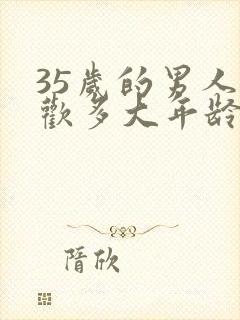 35歲的男人
歡多大年龄
隋欣